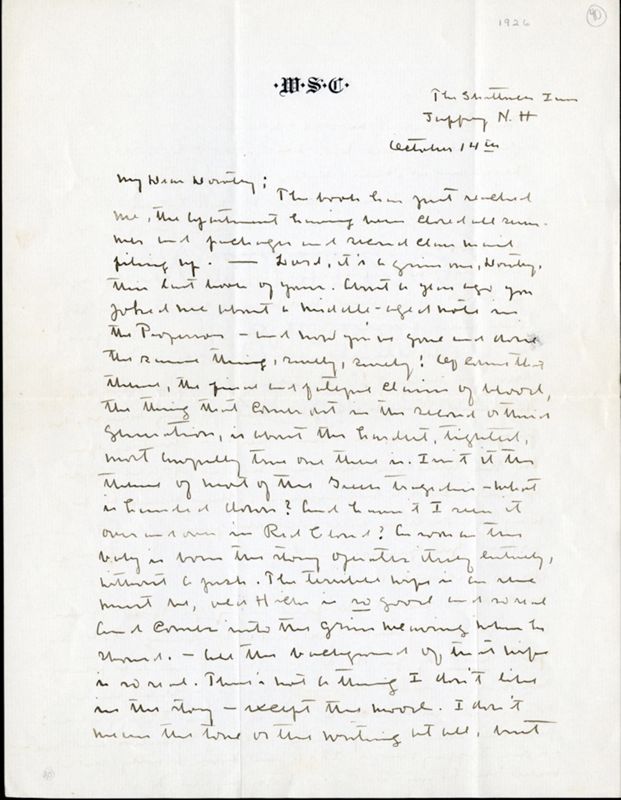 1926
40
·W·S·C·
The Shattuck Inn
Jaffrey N. H
October 14th
My Dear Dorothy:
The book has just reached
me, the apartment having been closed all sum-
mer and packages and second class mail
piling up. — Lord, it's a grim one, Dorothy,
this last book of yours. About a year ago you
joked me about a middle-aged note in
the Professor — and now you've gone and done
the same thing, surely, surely! Of course that
theme, the and claims of blood,
the thing that comes out in the second or third
generation, is about the hardest, tightest,
most awfully true one there is. Isn't it the
theme of most of the Greek tragedies — what
is handed down? And haven't I seen it
over and over in Red Cloud? As soon as the
baby is born the story operates itself entirely,
without a push. The terrible wife is as she
must be, old is so good and so real
and comes into the grim meaning when he
should. — All the background of that wife
is so real. There's not a thing I don't like
in the story — except the mood. I don't
mean the tone or the writing at all, but
40